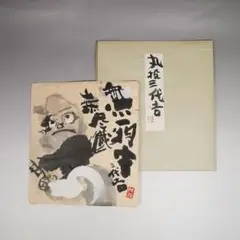 無一物中
無尽蔵
三代吉
丸投三代吉